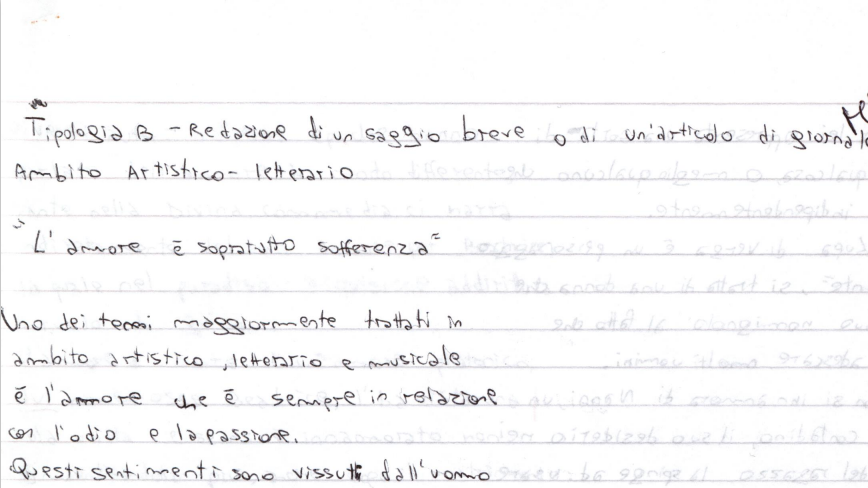 Tipologia B - Redazione di un saggio breve o di un'articolo di giornale
Ambito Artistico-letterario
"L'amore è sopratutto sofferenza"
Uno dei temi maggiormente trattati in
ambito artistico, letterario e musicale
è l'amore che è sempre in relazione
con l'odio e la passione.
Questi sentimenti sono vissuti dall'uomo